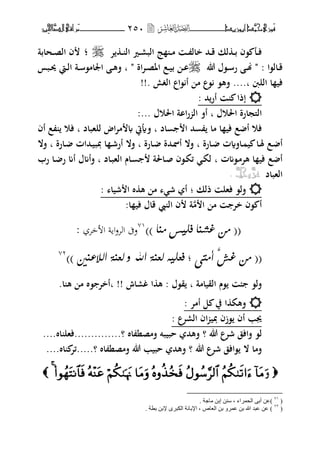 ٢٥٠
فأكون بذلك قد خالفت منهج البشير النذير ؛ لأن الصحابة
قالوا : " نهى رسول الله عن بيع المصراة " ، وهى الجاموسة التي يحبس
فيها اللبن ، .... وهو نوع من أنواع الغش !!.
إذا كنت أريد :
التجارة الحلال ، أو الزراعة الحلال ...:
فلا أضع فيها ما يفسد الأجساد ، ويأتي بالأمراض للعباد ، فلا ينفع أن
أضع لها كيماويات ضارة ، ولا أسمدة ضارة ، ولا أرشها بمبيدات ضارة ، ولا
أضع فيها هرمونات ، لكي تكون صالحة لأجسام العباد ، وأنال أنا رضا رب
العباد .
ولو فعلت ذلك ؛ أي شيء من هذه الأشياء :
أكون خرجت من الأمَّة لأن النبي قال فيها:
(( من غشنا فليس منا ))٧١ وفى الرواية الأخري :
(( من غش أمتى ؛ فعليه لعنة الله ولعنة اللاعنين ))٧٢
ولو جئت يوم القيامة ، يقول : هذا غشاش !! ،أخرجوه من هنا.
وهكذا في كل أمر :
يجب أن يوزن بميزان الشرع :
لو وافق شرع الله ؟ وهدي حبيبه ومصطفاه ؟..............فعلناه....
وما لا يوافق شرع الله ؟ وهدي حبيب الله ومصطفاه ؟.....تركناه....
﴿ وَمَآ ءَاتَىٰكُمُ ٱلرَّسُولُ فَخُذُوهُ وَمَا نَهَىٰكُمْ عَنْهُ فَٱنتَهُوا۟ ﴾
(٧١) عن أبى الحمراء ، سنن إبن ماجة .
(٧٢) عن عبد الله بن عمرو بن العاص ، الإبانة الكبرى لإبن بطة .